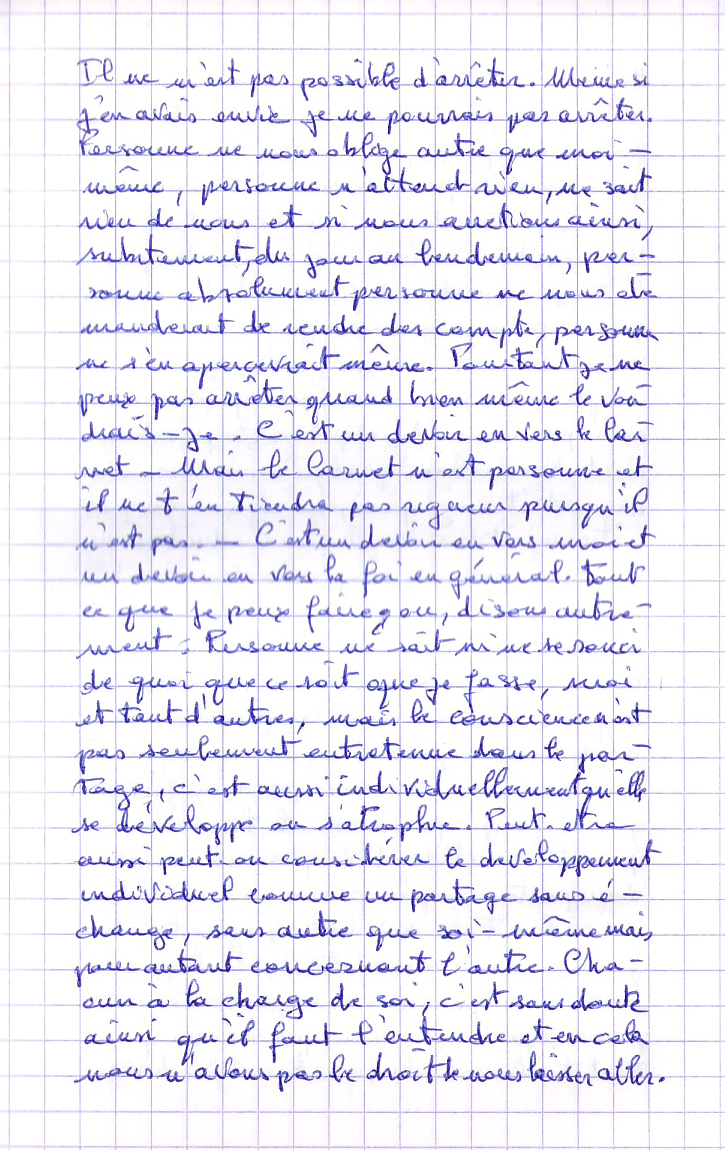 Il ne m'est pas possible d'arrêter. Même si
j'en avais envie je ne pourrais pas arrêter.
Personne ne nous oblige autre que moi -
même, personne n'attend rien, ne sait
rien de nous et si nous arrêtions ainsi,
subitement, du jour au lendemain, per-
sonne absolument personne ne nous de
manderait de rendre des compte, personne
ne s'en apercevrait même. Pourtant je ne
peux pas arrêter quand bien même le vou
drais-je. C'est un devoir en vers le car
net - Mais le Carnet n'est personne et
il ne t'en tiendra pas rigueur puisqu'il
n'est pas. - C'est un devoir en vers moi et
un devoir en vers la foi en général. Tout
ce que je peux faire, disons autre-
ment : Personne ne sait ni ne se souci
de quoi que ce soit que je fasse, moi
et tant d'autres, mais la conscience n'est
pas seulement entretenue dans le par-
tage, c'est aussi individuellement qu'elle
se développe ou s'atrophie. Peut-etre
aussi peut-on considérer le developpement
individuel comme un partage sans é -
change, sans autre que soi-même mais
pour autant concernant l'autre. Cha -
cun à la charge de soi, c'est sans doute
ainsi qu'il faut l'entendre et en cela
nous n'avons pas le droit de nous laisser aller.